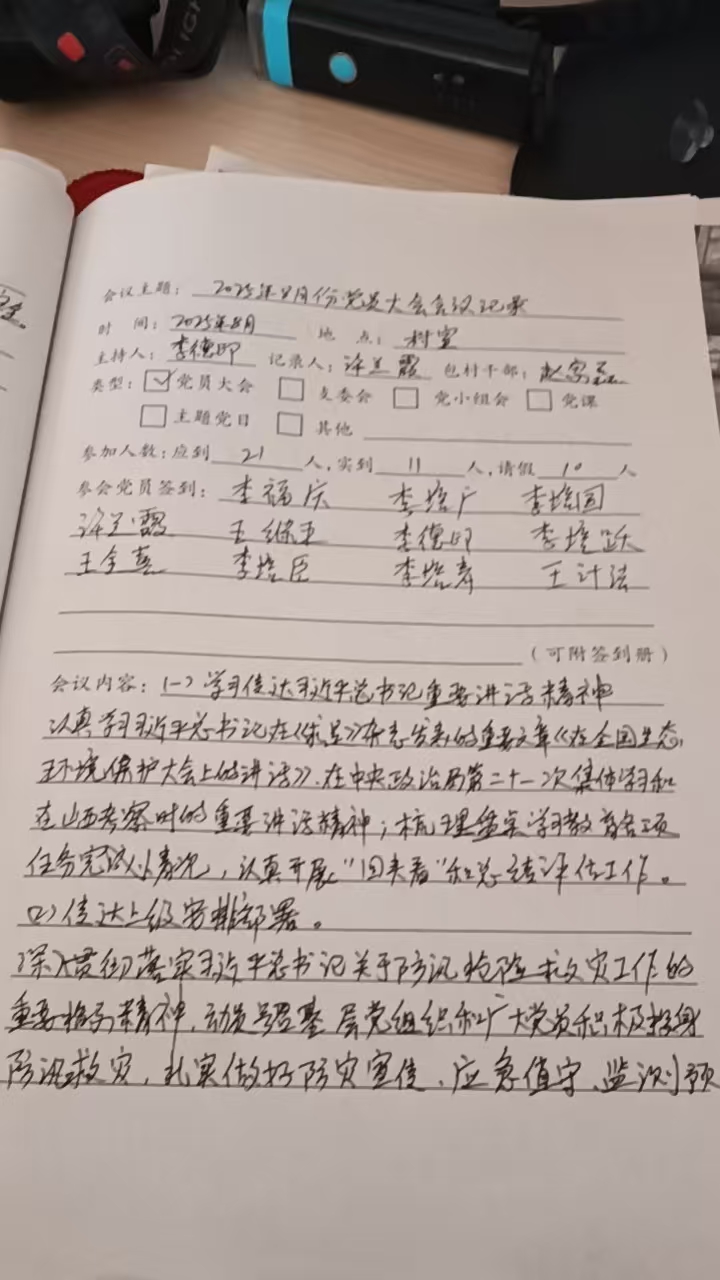 会议主题：2025年8月份党员大会会议记录
时 间：2025年8月 地 点：村室
主持人：李德印 记录人：许兰霞 包村干部：赵
类型：☑党员大会 □支委会 □党小组会 □党课
□主题党日 □其他
参加人数：应到 21 人，实到 11 人，请假 10 人
参会党员签到：李福庆 李培广 李培国
许兰霞 王继平 李德印 李培跃
王全喜 李培臣 李培寿 王计法
（可附签到册）
会议内容：(一)学习传达习近平总书记重要讲话精神
认真学习习近平总书记在《求是》杂志发表的重要文章《在全国生态
环境保护大会上的讲话》、在中央政治局第二十一次集体学习和
在山西考察时的重要讲话精神；梳理盘点学习教育各项
任务完成情况，认真开展“回头看”和总结评估工作。
(二)传达上级安排部署。
深入贯彻落实习近平总书记关于防汛抢险救灾工作的
重要指示精神，动员基层党组织和广大党员积极投身
防汛救灾，扎实做好防灾宣传、应急值守、监测预